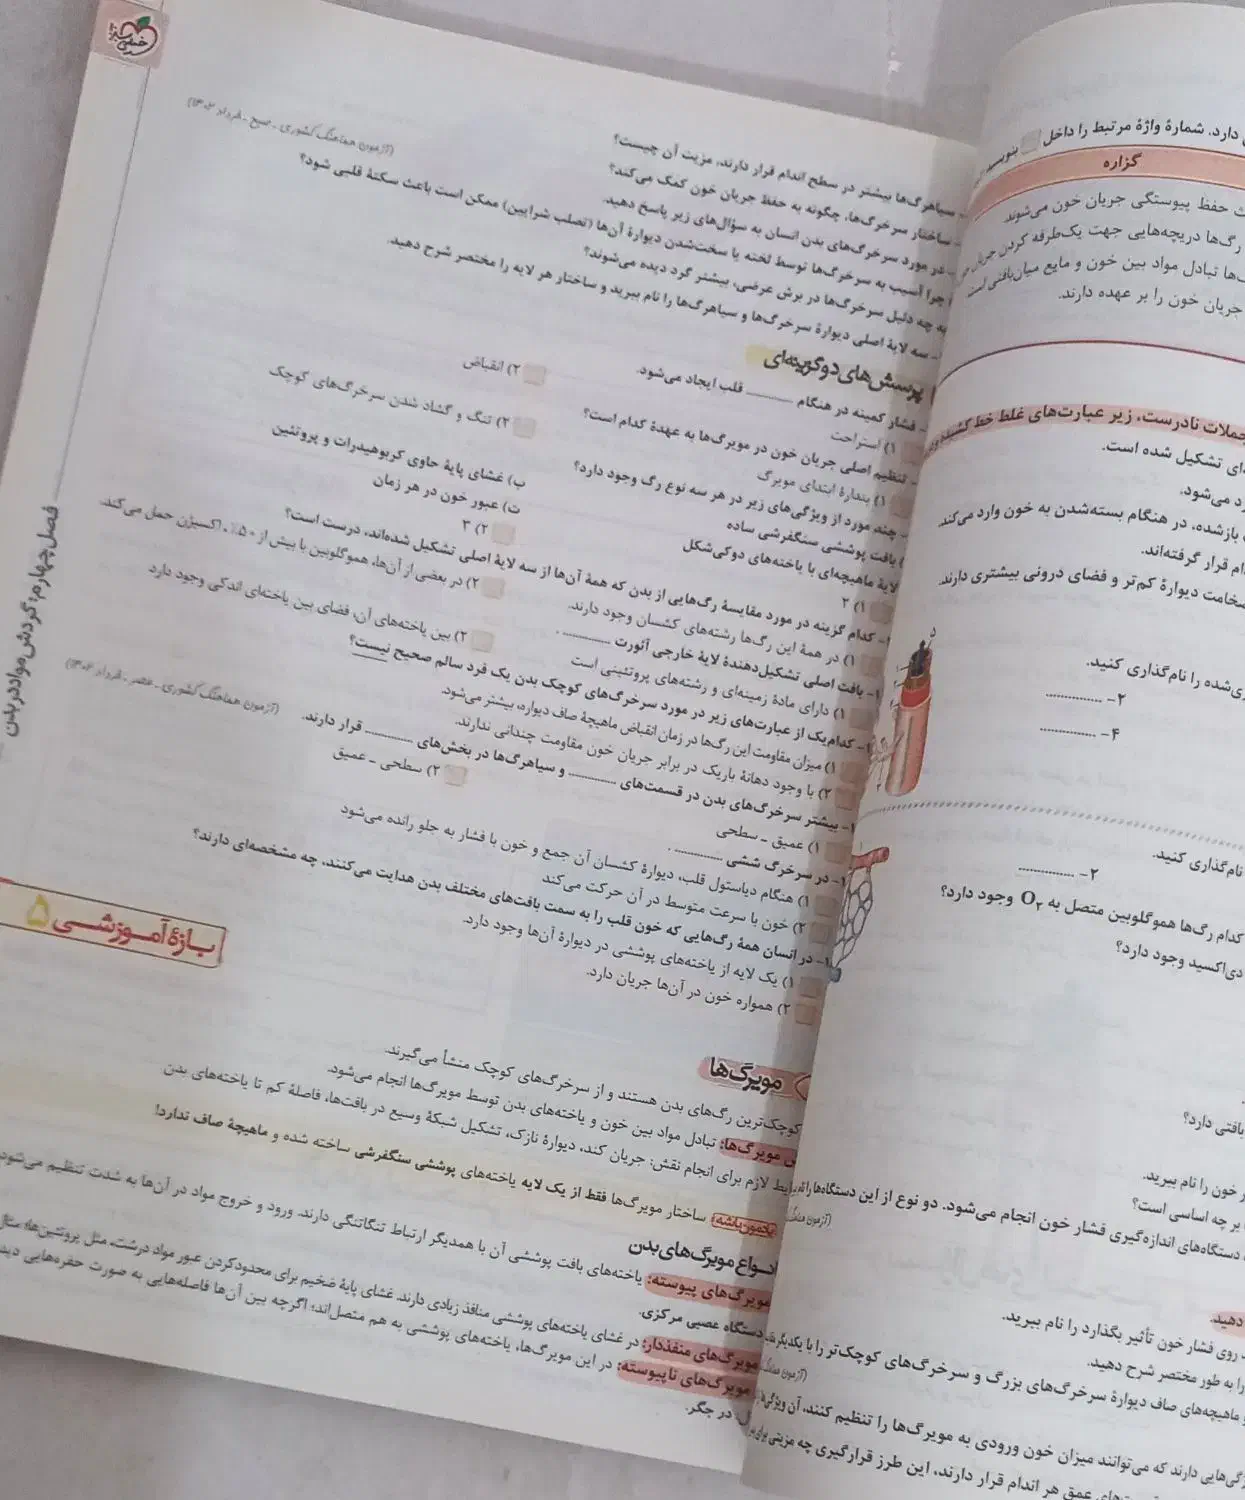 خیلی سبز
(آزمون هماهنگ کشوری - صبح - خرداد ۱۴۰۳)
سیاهرگ‌ها بیشتر در سطح اندام قرار دارند، مزیت آن چیست؟
ساختار سرخرگ‌ها، چگونه به حفظ جریان خون کمک می‌کند؟
در مورد سرخرگ‌های بدن انسان به سؤال‌های زیر پاسخ دهید.
چرا آسیب به سرخرگ‌ها توسط لخته یا سخت‌شدن دیوارهٔ آن‌ها (تصلب شرایین) ممکن است باعث سکتهٔ قلبی شود؟
به چه دلیل سرخرگ‌ها در برش عرضی، بیشتر گرد دیده می‌شوند؟
سه لایهٔ اصلی دیوارهٔ سرخرگ‌ها و سیاهرگ‌ها را نام ببرید و ساختار هر لایه را مختصر شرح دهید.
پرسش‌های دوگزینه‌ای
فشار کمینه در هنگام ............ قلب ایجاد می‌شود.
۱) استراحت
۲) انقباض
تنظیم اصلی جریان خون در مویرگ‌ها به عهدهٔ کدام است؟
۱) بندارهٔ ابتدای مویرگ
۲) تنگ و گشاد شدن سرخرگ‌های کوچک
چند مورد از ویژگی‌های زیر در هر سه نوع رگ وجود دارد؟
بافت پوششی سنگفرشی ساده
ب) غشای پایهٔ حاوی کربوهیدرات و پروتئین
لایهٔ ماهیچه‌ای با یاخته‌های دوکی‌شکل
ت) عبور خون در هر زمان
۱) ۲
۲) ۳
کدام گزینه در مورد مقایسهٔ رگ‌هایی از بدن که همهٔ آن‌ها از سه لایهٔ اصلی تشکیل شده‌اند، درست است؟
۱) در همهٔ این رگ‌ها رشته‌های کشسان وجود دارند.
۲) در بعضی از آن‌ها، هموگلوبین با بیش از ۵۰٪ اکسیژن حمل می‌کند.
بافت اصلی تشکیل‌دهندهٔ لایهٔ خارجی آئورت ............ .
۱) دارای مادهٔ زمینه‌ای و رشته‌های پروتئینی است
۲) بین یاخته‌های آن، فضای بین یاخته‌ای اندکی وجود دارد
کدام‌یک از عبارت‌های زیر در مورد سرخرگ‌های کوچک بدن یک فرد سالم صحیح نیست؟
۱) میزان مقاومت این رگ‌ها در زمان انقباض ماهیچهٔ صاف دیواره، بیشتر می‌شود.
۲) با وجود دهانهٔ باریک در برابر جریان خون مقاومت چندانی ندارند.
(آزمون هماهنگ کشوری - عصر - خرداد ۱۴۰۳)
بیشتر سرخرگ‌های بدن در قسمت‌های ............ و سیاهرگ‌ها در بخش‌های ............ قرار دارند.
۱) عمیق - سطحی
۲) سطحی - عمیق
در سرخرگ ششی ............ .
۱) هنگام دیاستول قلب، دیوارهٔ کشسان آن جمع و خون با فشار به جلو رانده می‌شود
۲) خون با سرعت متوسط در آن حرکت می‌کند
در انسان همهٔ رگ‌هایی که خون قلب را به سمت بافت‌های مختلف بدن هدایت می‌کنند، چه مشخصه‌ای دارند؟
۱) یک لایه از یاخته‌های پوششی در دیوارهٔ آن‌ها وجود دارد.
۲) همواره خون در آن‌ها جریان دارد.
بازهٔ آموزشی ۵
مویرگ‌ها
کوچک‌ترین رگ‌های بدن هستند و از سرخرگ‌های کوچک منشأ می‌گیرند.
مویرگ‌ها: تبادل مواد بین خون و یاخته‌های بدن توسط مویرگ‌ها انجام می‌شود.
لازم برای انجام نقش: جریان کند، دیوارهٔ نازک، تشکیل شبکهٔ وسیع در بافت‌ها، فاصلهٔ کم تا یاخته‌های بدن
یادمون باشه: ساختار مویرگ‌ها فقط از یک لایه یاخته‌های پوششی سنگفرشی ساخته شده و ماهیچهٔ صاف ندارد!
انواع مویرگ‌های بدن
مویرگ‌های پیوسته: یاخته‌های بافت پوششی آن با همدیگر ارتباط تنگاتنگی دارند. ورود و خروج مواد در آن‌ها به شدت تنظیم می‌شود
دستگاه عصبی مرکزی.
مویرگ‌های منفذدار: در غشای یاخته‌های پوششی منافذ زیادی دارند. غشای پایهٔ ضخیم برای محدودکردن عبور مواد درشت، مثل پروتئین‌ها؛ مثال
مویرگ‌های ناپیوسته: در این مویرگ‌ها، یاخته‌های پوششی به هم متصل‌اند؛ اگرچه بین آن‌ها فاصله‌هایی به صورت حفره‌هایی دیده
در جگر.
فصل چهارم: گردش مواد در بدن
دارد. شمارهٔ واژهٔ مرتبط را داخل بنویسید.
گزاره
حفظ پیوستگی جریان خون می‌شوند.
رگ‌ها دریچه‌هایی جهت یک‌طرفه کردن جریان
تبادل مواد بین خون و مایع میان‌بافتی است.
جریان خون را بر عهده دارند.
جملات نادرست، زیر عبارت‌های غلط خط کشیده و
تشکیل شده است.
می‌شود.
بازشده، در هنگام بسته‌شدن به خون وارد می‌کند.
قرار گرفته‌اند.
ضخامت دیوارهٔ کم‌تر و فضای درونی بیشتری دارند.
شده را نام‌گذاری کنید.
۲- ............
۴- ............
نام‌گذاری کنید.
۲- ............
کدام رگ‌ها هموگلوبین متصل به O₂ وجود دارد؟
دی‌اکسید وجود دارد؟
بافتی دارد؟
خون را نام ببرید.
بر چه اساسی است؟
دستگاه‌های اندازه‌گیری فشار خون انجام می‌شود. دو نوع از این دستگاه‌ها را نام
دهید.
روی فشار خون تأثیر بگذارد را نام ببرید.
را به طور مختصر شرح دهید.
ماهیچه‌های صاف دیوارهٔ سرخرگ‌های بزرگ و سرخرگ‌های کوچک‌تر را با یکدیگر
دارند که می‌توانند میزان خون ورودی به مویرگ‌ها را تنظیم کنند، آن ویژگی‌ها
عمق هر اندام قرار دارند، این طرز قرارگیری چه مزیتی برای